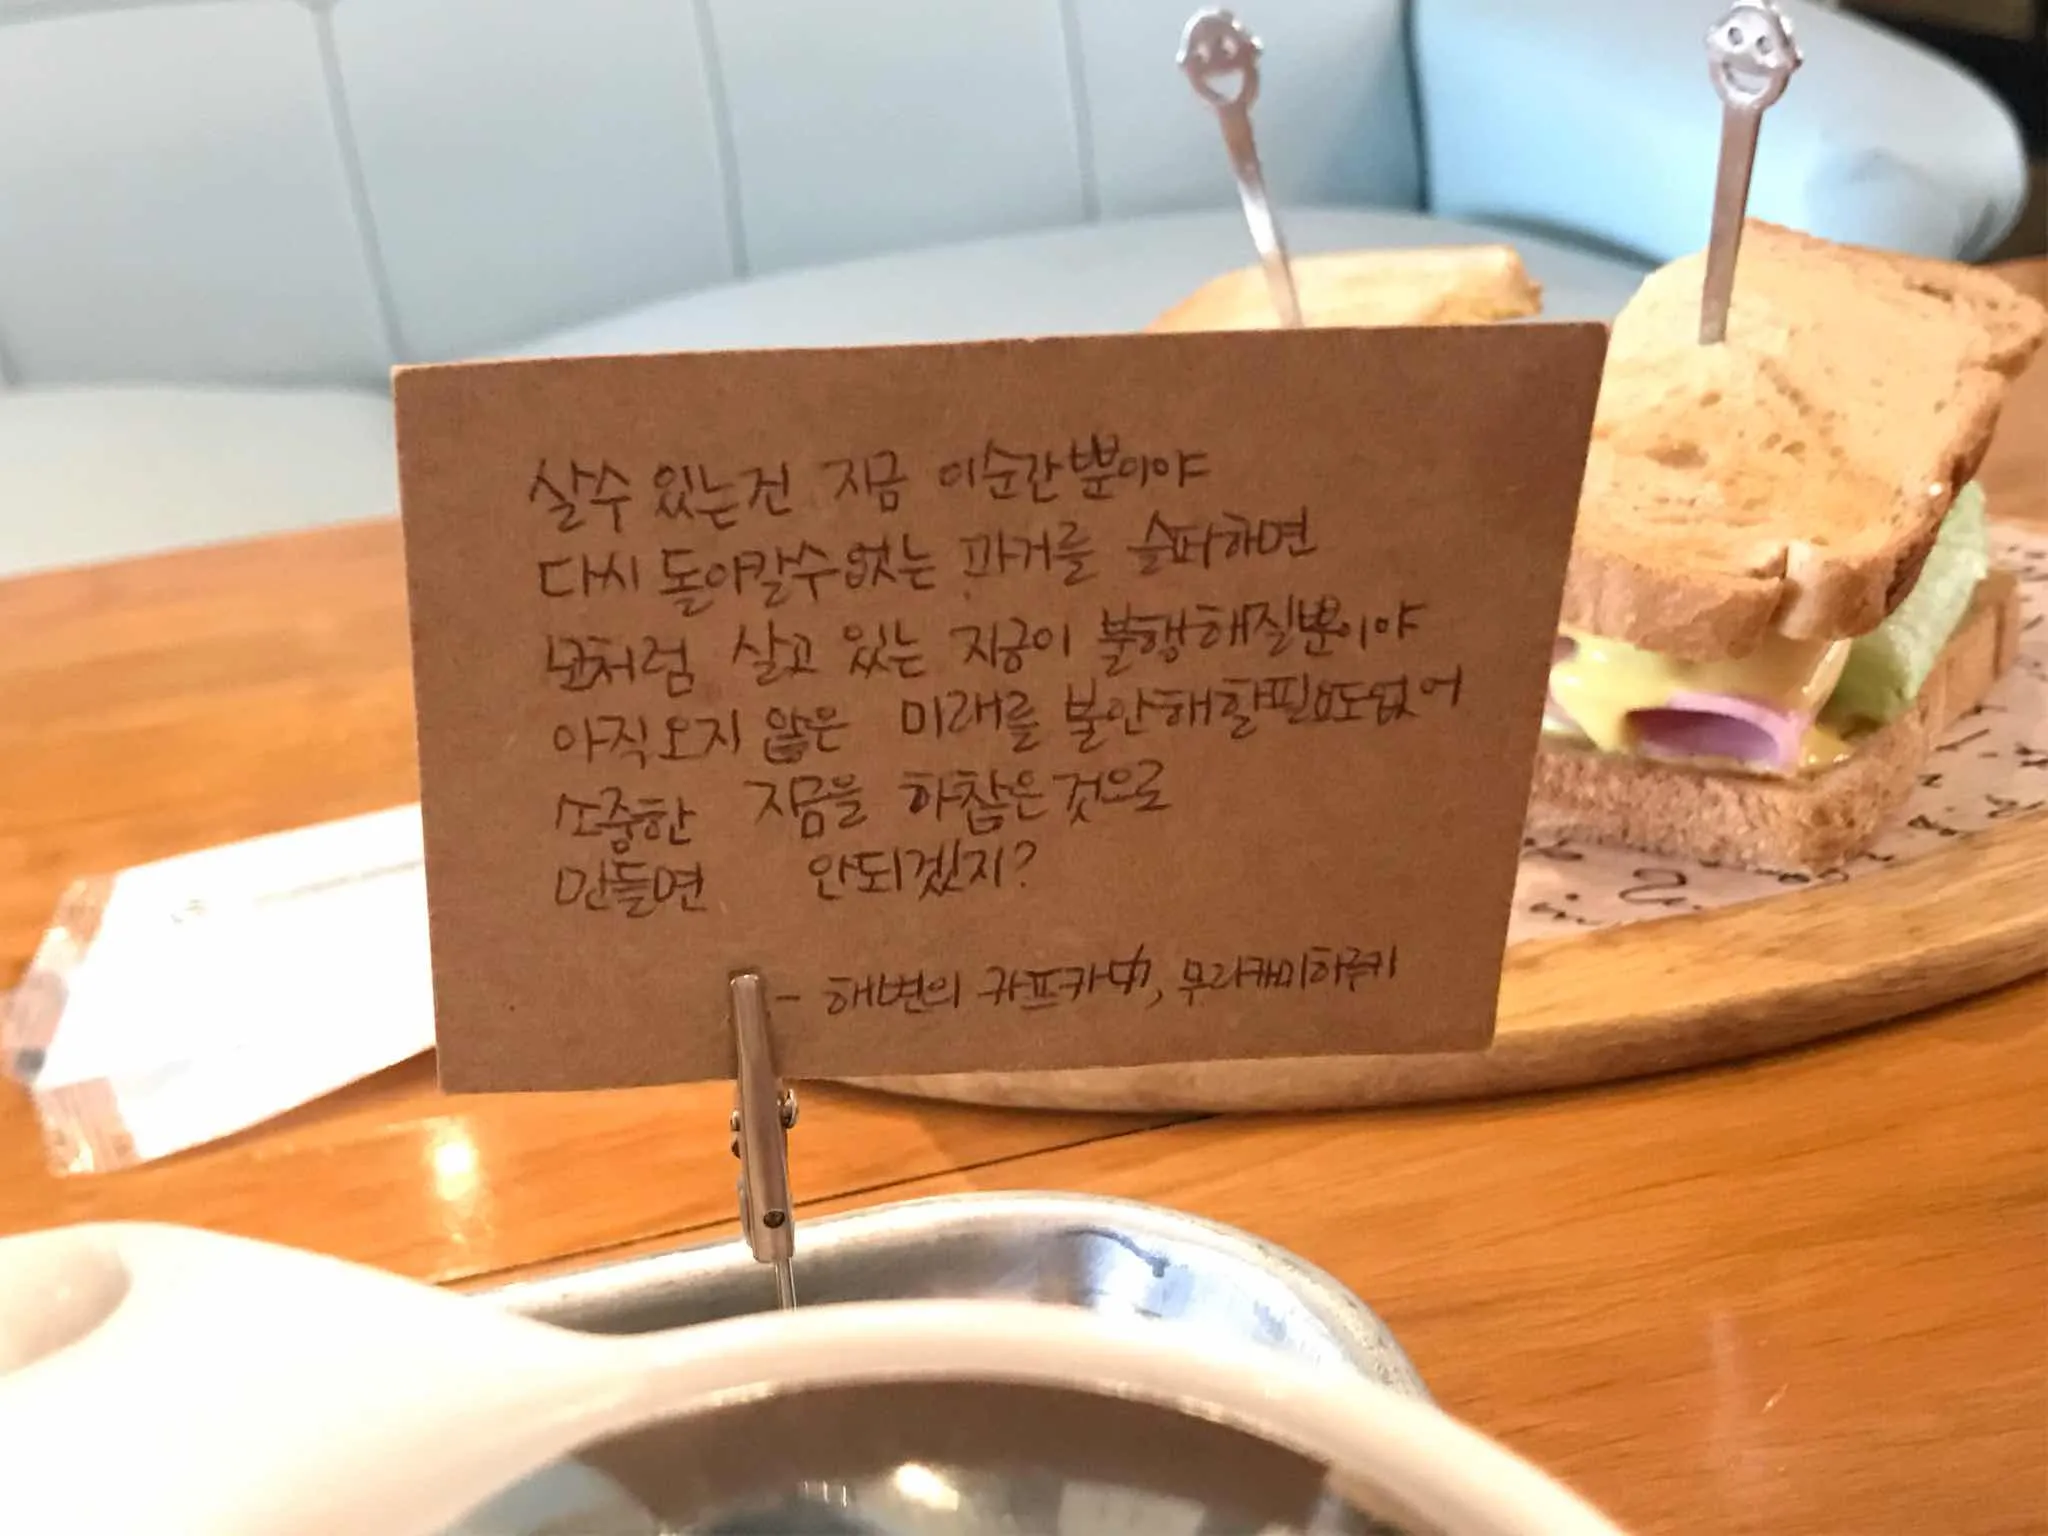 살수 있는건 지금 이순간뿐이야
다시 돌아갈수없는 과거를 슬퍼하면
모처럼 살고 있는 지금이 불행해질뿐이야
아직오지 않은 미래를 불안해할필요도없어
소중한 지금을 하찮은것으로
만들면 안되겠지?
- 해변의 카프카中, 무라카미하루키